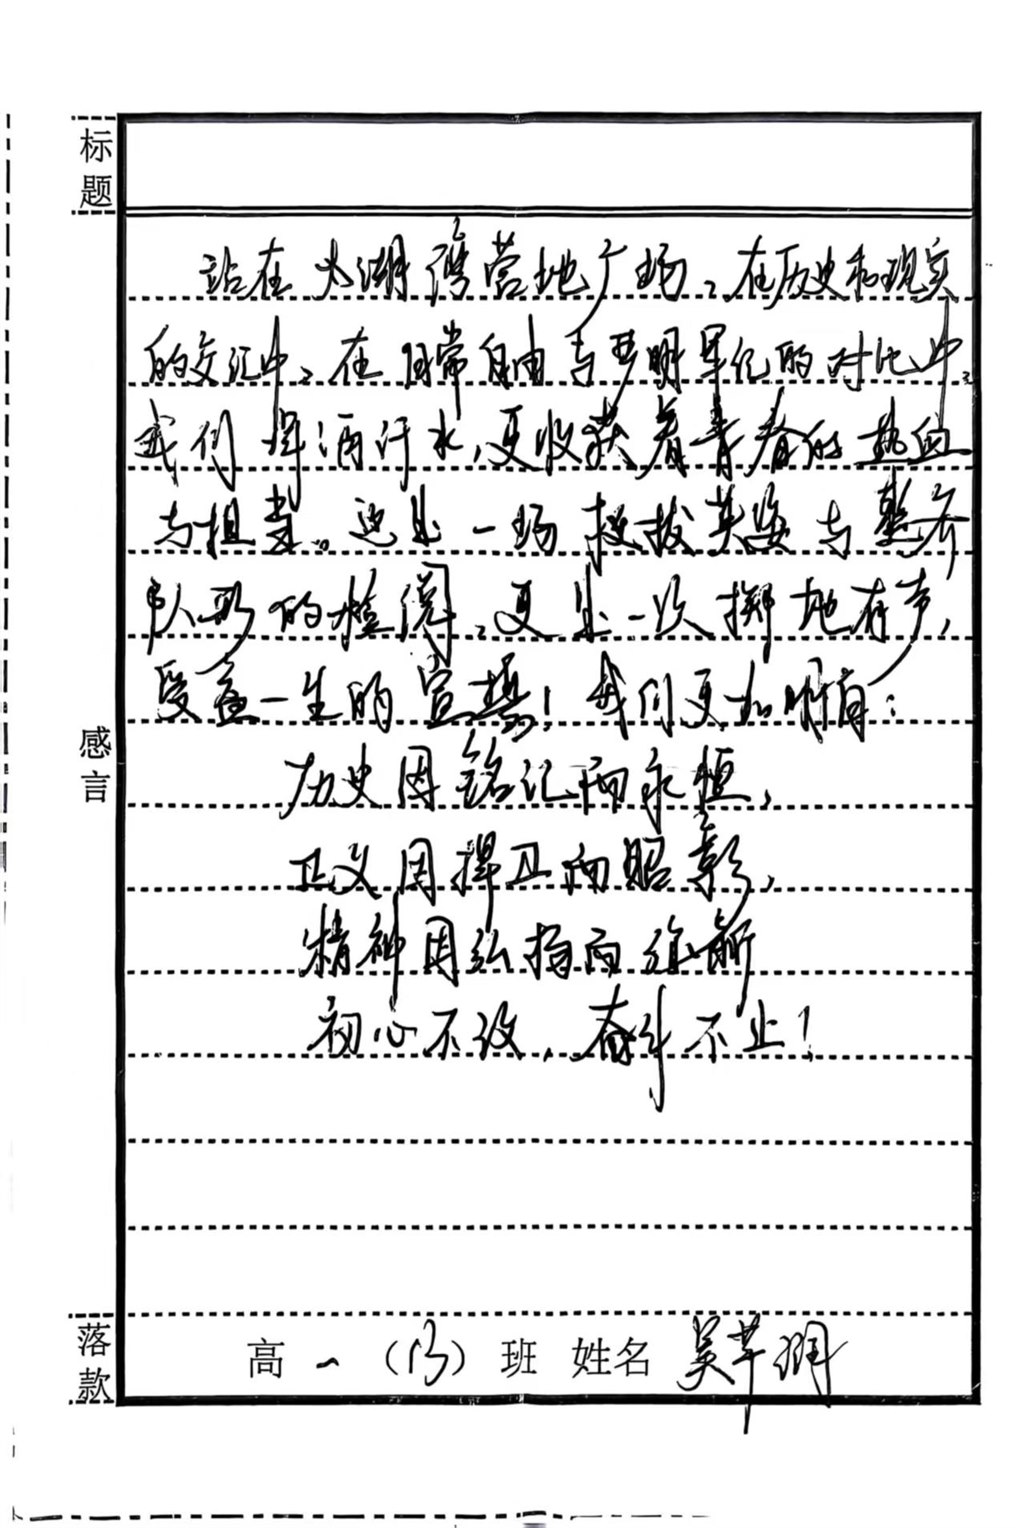 标题
站在火湖湾营地广场、在历史和现实
的交汇中、在日常自由与严明军纪的对比中、
我们挥洒汗水,更收获着青春的热血
与担当。这是一场挺拔英姿与整齐
队形的检阅、更是一次掷地有声,
受益一生的宣誓!我们更加明白:
感言
历史因铭记而永恒,
正义因捍卫而昭彰,
精神因弘扬而弥新
初心不改,奋斗不止!
落款
高一(13)班 姓名 吴芊润